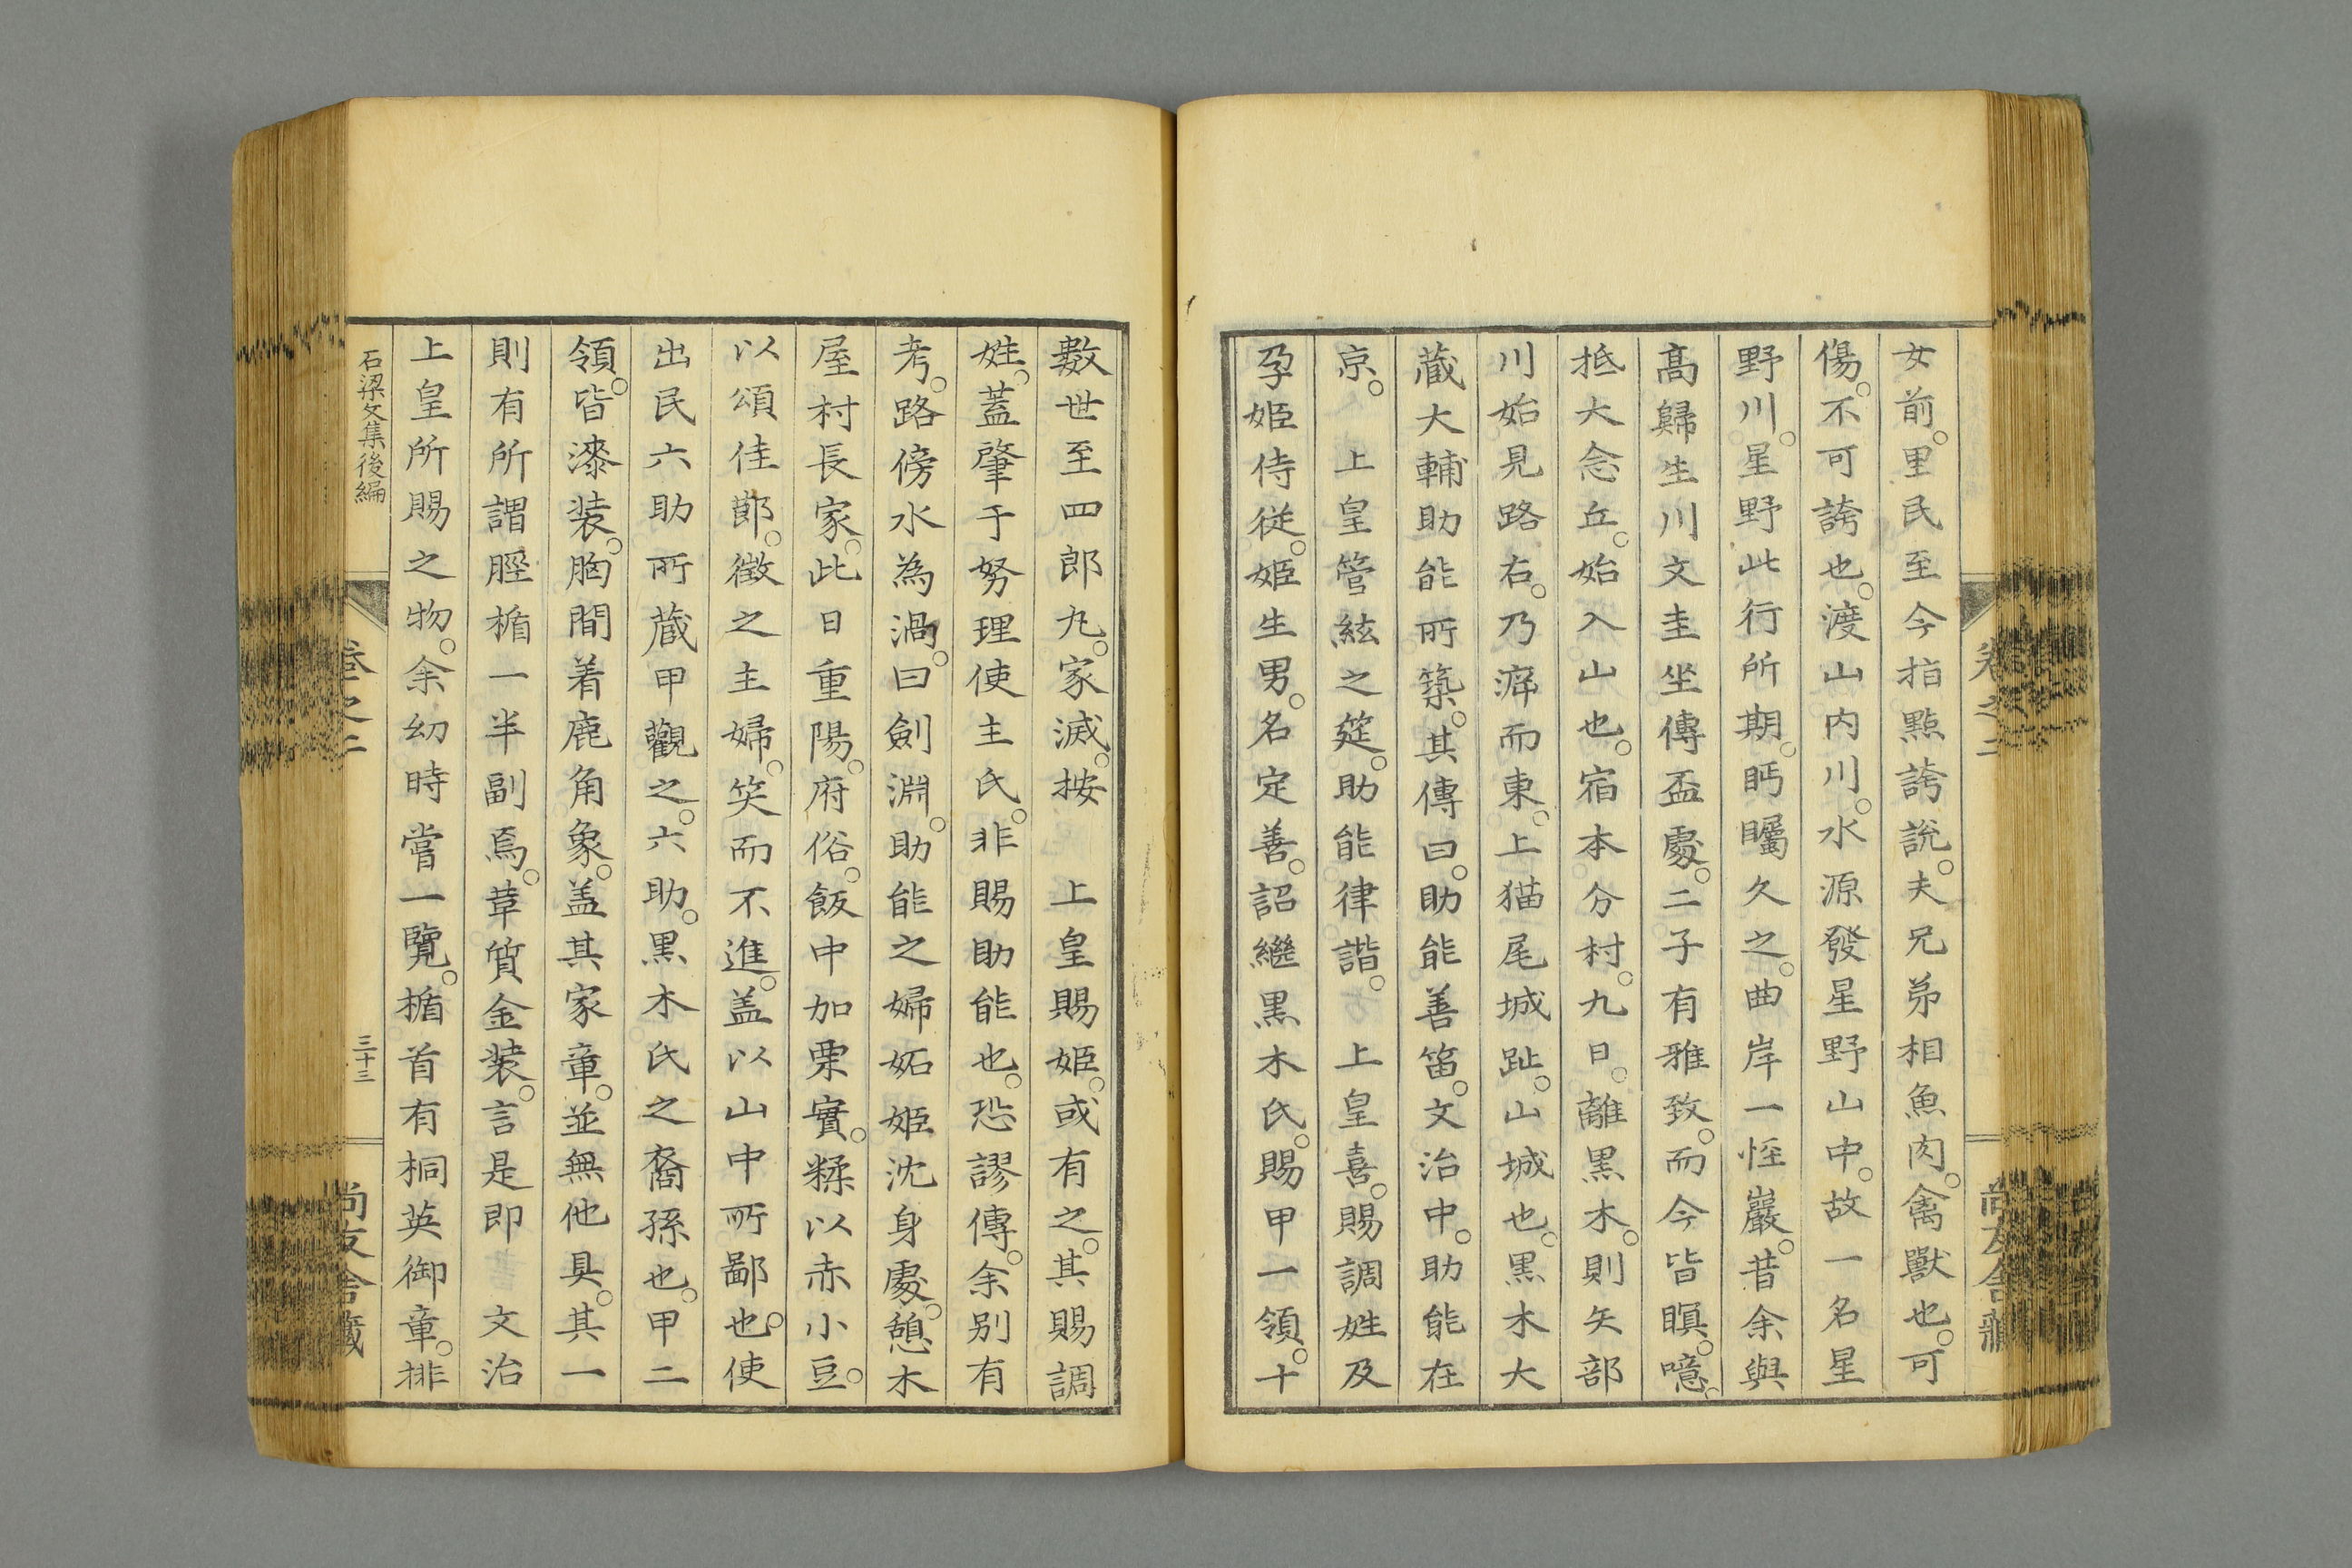 女前。里民至今指點誇説。夫兄弟相魚肉。禽獸也。可
傷。不可誇也。渡山内川。水源發星野山中。故一名星
野川。星野此行所期。眄矚久之。曲岸一怪巖。昔余與
髙歸生川文圭坐傳盃處。二子有雅致。而今皆瞑。噫。
抵大念丘。始入山也。宿本分村。九日。離黒木。則矢部
川始見路右。乃泝而東。上猫尾城趾。山城也。黒木大
蔵大輔助能所築。其傳曰。助能善笛。文治中。助能在
京。　上皇管絃之筵。助能律諧。　上皇喜。賜調姓及
孕姫侍從。姫生男。名定善。詔繼黒木氏。賜甲一領。十
數世至四郎丸。家滅。按　上皇賜姫。或有之。其賜調
姓。蓋肇于努理使主氏。非賜助能也。恐謬傳。余别有
考。路傍水為渦。曰劍淵。助能之婦妬姫沈身處。憩木
屋村長家。此日重陽。府俗。飯中加栗實。糅以赤小豆。
以頌佳節。徴之主婦。笑而不進。盖以山中所鄙也。使
出民六助所蔵甲觀之。六助。黒木氏之裔孫也。甲二
領。皆漆装。胸間着鹿角象。盖其家章。並無他具。其一
則有所謂脛楯一半副焉。韋質金装。言是即　文治
上皇所賜之物。余幼時嘗一覽。楯首有桐英御章。排
石梁文集後編
卷之二
三十三
尚友舍藏